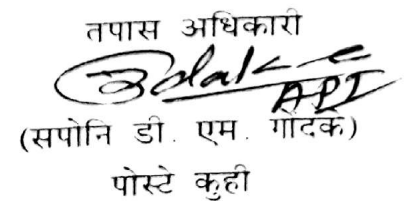 तपास अधिकारी
API
(सपोनि डी. एम. गोंदके)
पोस्टे कुही